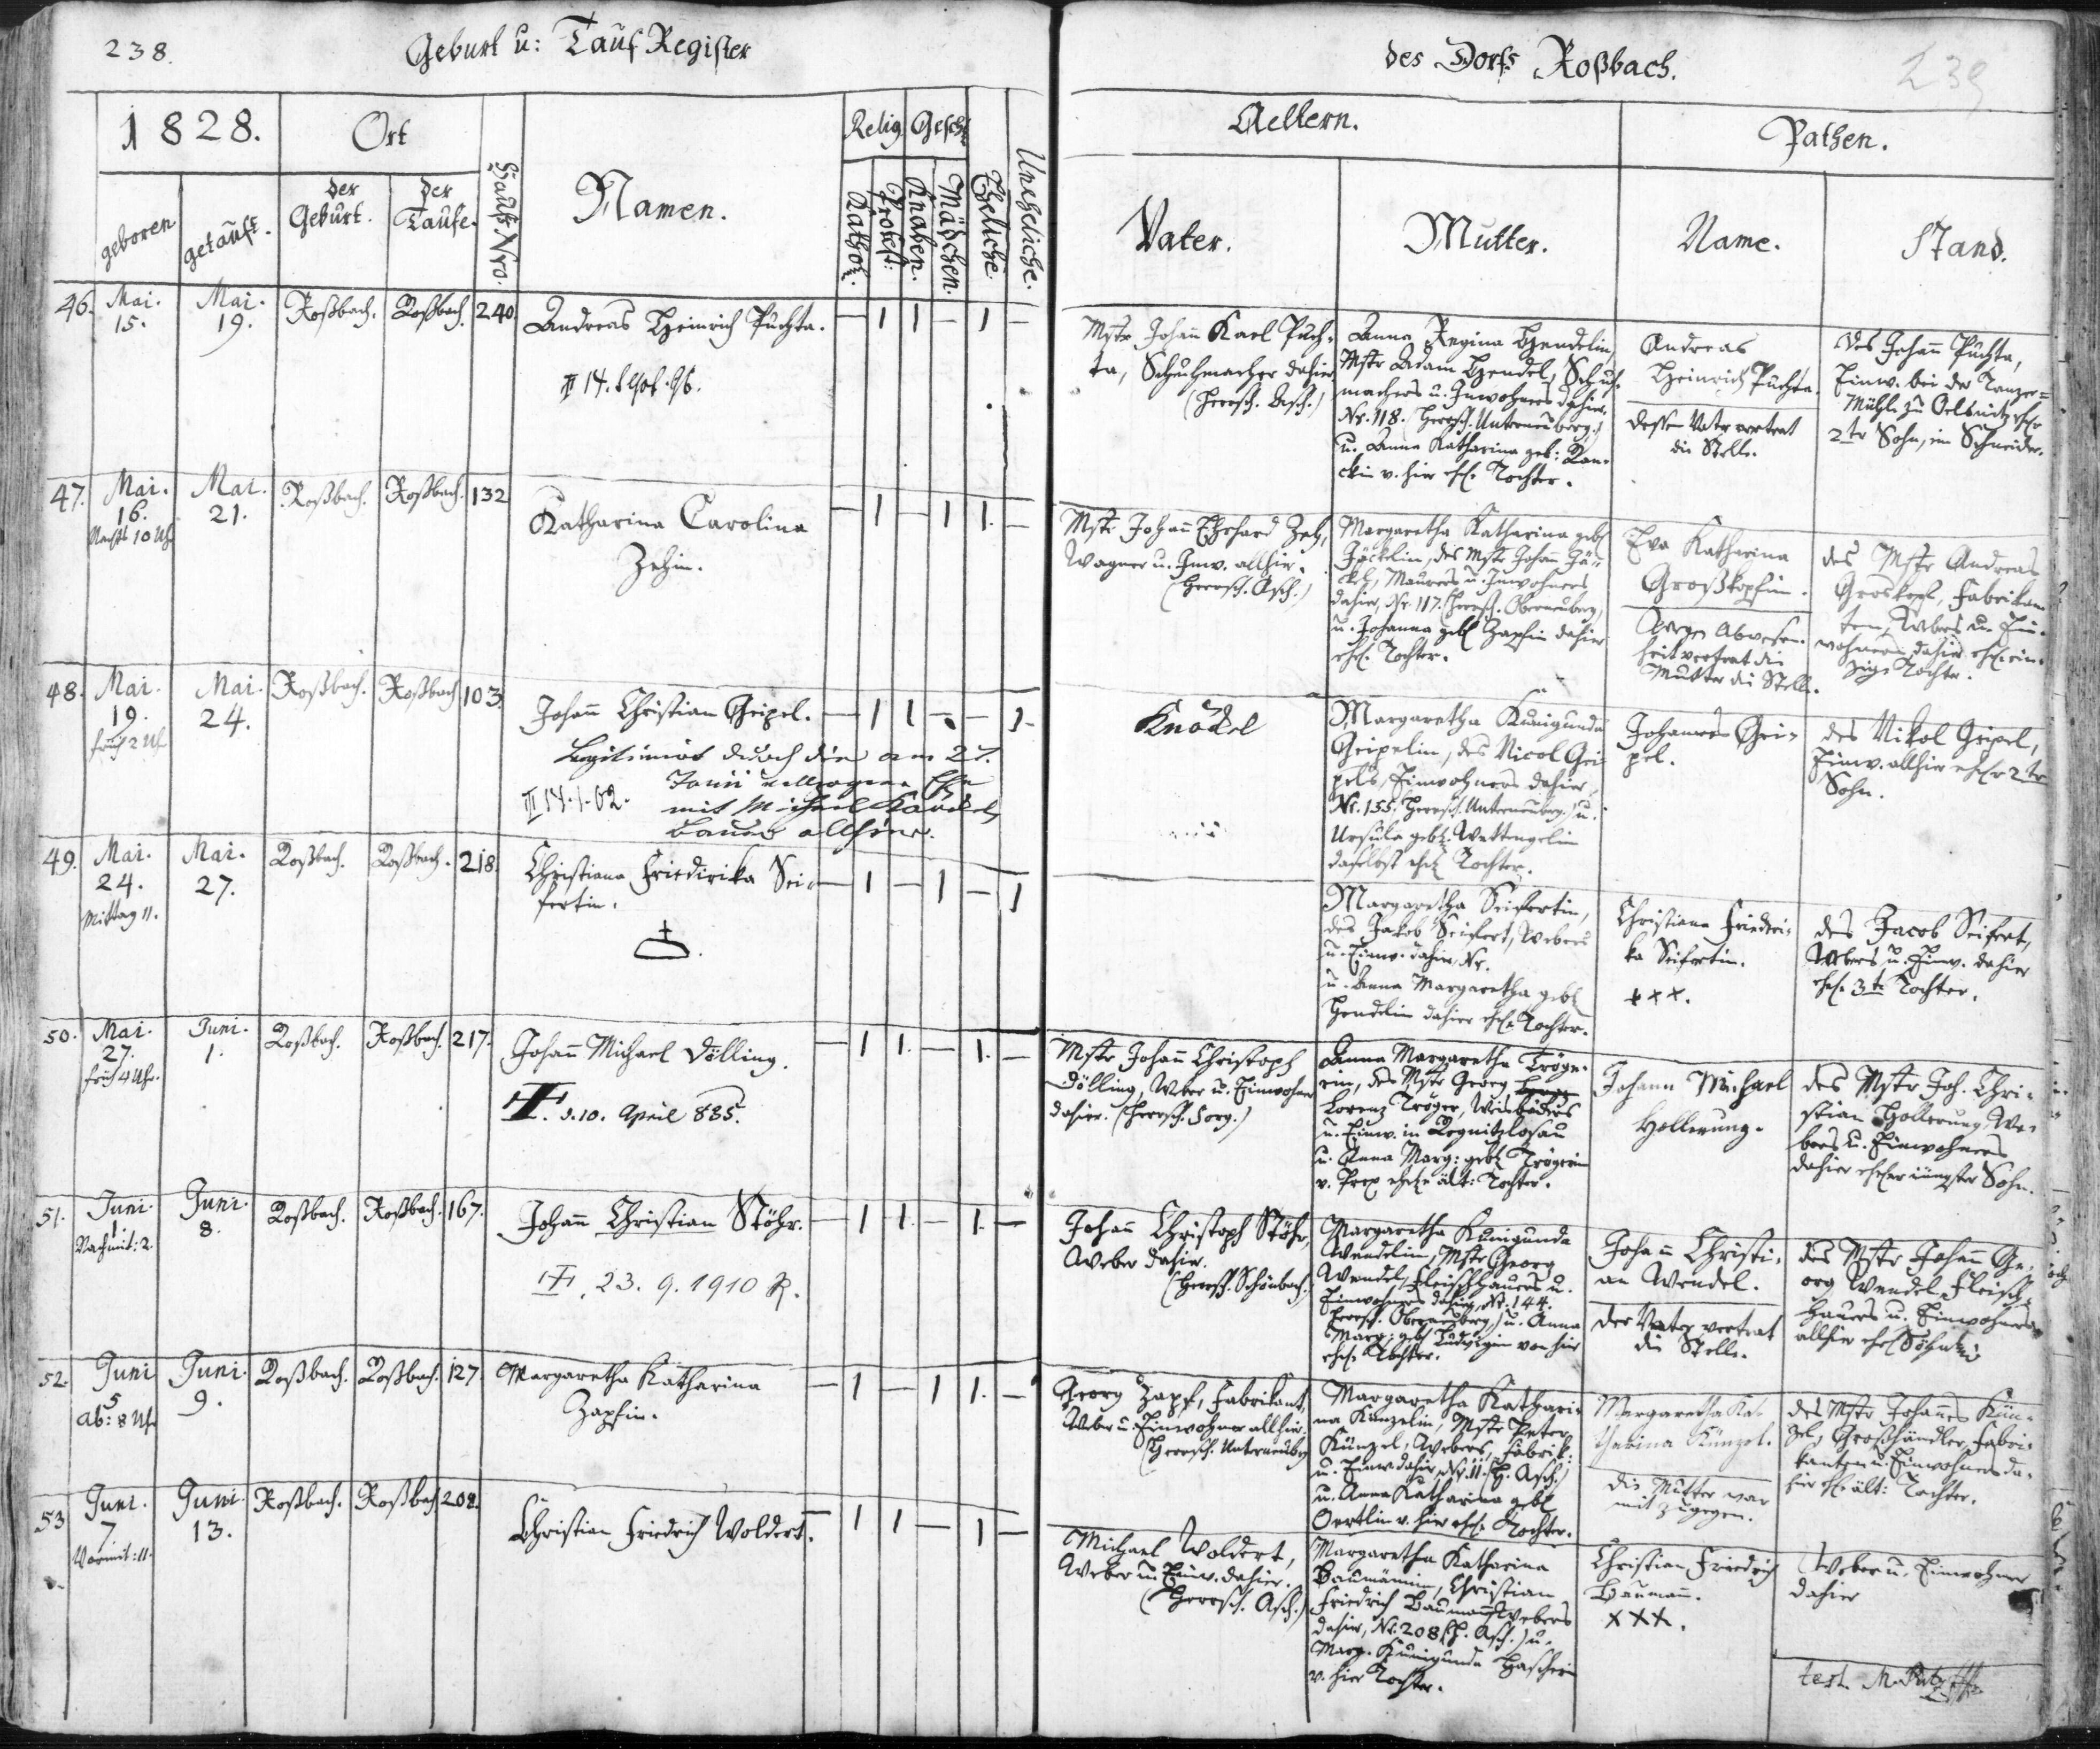 238.
Geburt u: Tauf Register
des Dorfs Roßbach.
239
1828.
Ort
Namen.
Relig.
Geschl.
Haus Nro.
geboren
getauft.
der Geburt.
der Taufe.
Kathol.
Protest:
Knaben.
Mädchen.
Eheliche.
Uneheliche.
Aeltern.
Pathen.
Vater.
Mutter.
Name.
Stand.
46. Mai. 15. Mai. 19. Roßbach. Roßbach. 240. Andreas Heinrich Puchta. — 1 1 — 1 —
14. 96.
Mstr. Johann Karl Puch-
ta, Schuhmacher dahier
(Herrsch. Asch.)
Anna Regina Hendelin,
Mstr Adam Hendel, Schuh-
machers u. Inwohners dahier,
Nr. 118. Herrsch. Unterneuberg,)
u. Anna Katharina geb:
v. hier ehl. Tochter.
Andreas
Heinrich Puchta.
dessen Vater vertrat
die Stelle.
des Johann Puchta,
Einw. bei der Tanzer=
Mühle zu Oelsnitz ehlr
2tr Sohn, ein Schneider.
47. Mai. 16. Nachts 10 Uhr Mai. 21. Roßbach. Roßbach. 132 Katharina Carolina
Zehin. — 1 — 1 1. —
Mstr. Johann Erhard Zeh,
Wagner u. Inw. allhier.
(Herrsch. Asch.)
Margaretha Katharina geb.
Jäcklin, des Mstr Johann Jä-
ckel, Maurers u. Inwohners
dahier, Nr. 117. (Herrsch. Oberneuberg,
u. Johanna geb. Zapfin dahier
ehl. Tochter.
Eva Katharina
Großkopfin.
Wegen Abwesen-
heit vertrat die
Mutter die Stelle.
des Mstr Andreas
Groskopf, Fabrikan-
ten, Webers u. Ein-
wohners dahier ehl. ein-
zige Tochter.
48. Mai. 19. früh 2 Uhr Mai. 24. Roßbach. Roßbach 103. Johann Christian Geipel. — 1 1 — — 1.
Legitimirt durch die am 27.
Juni vollzogene Ehe
mit Michael Knöckel,
Bauer allhier.
III 14.1.02.
Knöckel
Margaretha Kunigunda
Geipelin, des Nicol Gei-
pels, Einwohners dahier,
Nr. 155. Herrsch. Unterneuberg,) u.
Ursula geb. Wettengelin
daselbst ehl. Tochter.
Johannes Gei-
pel.
des Nikol Geipel,
Einw. allhier ehlr 2tr
Sohn.
49. Mai. 24. Mittag 11. Mai. 27. Roßbach. Roßbach. 218. Christiana Friedirika Sei-
fertin. — 1 — 1 — 1
Margaretha Seifertin,
des Jakob Seifert, Webers
u. Einw. dahier, Nr.
u. Anna Margaretha geb.
Hendelin dahier ehl. Tochter.
Christiana Friedri-
ka Seifertin.
+++.
des Jacob Seifert,
Webers u. Einw. dahier
ehl. 3te Tochter.
50. Mai. 27. früh 4 Uhr. Juni. 1. Roßbach. Roßbach. 217. Johann Michael Dölling. — 1 1. — 1. —
d. 10. April 885.
Mstr Johann Christoph
Dölling, Weber u. Einwohner
dahier. (Herrsch. Sorg.)
Anna Margaretha Tröge-
rin, des Mstr Georg
Lorenz Tröger, Weisbäckers
u. Einw. in Regnitzlosau
u. Anna Marg: geb. Trögerin
v. Prex ehl. ält: Tochter.
Johann Michael
Hollerung.
des Mstr Joh. Chri-
stian Hollerung, We-
bers u. Einwohners
dahier ehlr jüngster Sohn.
51. Juni. 1. Nachmit: 2. Juni. 8. Roßbach. Roßbach. 167. Johann Christian Stöhr. — 1 1. — 1. —
23. 9. 1910 R.
Johann Christoph Stöhr,
Weber dahier.
(Herrsch. Schönbach.)
Margaretha Kunigunda
Wendelin, Mstr Georg
Wendel, Fleischhauers u.
Einwohners dahier, Nr. 144.
Herrsch. Oberneuberg,) u. Anna
Marg: geb. Ludwigin von hier
ehl. Tochter.
Johann Christi-
an Wendel.
der Vater vertrat
die Stelle.
des Mstr Johann Ge-
org Wendel, Fleisch-
hauers u. Einwohners
allhier ehl. Söhnlein
52. Juni 5 Ab: 8 Uhr Juni. 9. Roßbach. Roßbach. 127. Margaretha Katharina
Zapfin. — 1 — 1 1. —
Georg Zapf, Fabrikant,
Weber u. Einwohner allhier.
(Herrsch. Unterneuberg
Margaretha Kathari-
na Künzelin, Mstr Peter
Künzel, Webers, Fabrik:
u. Einw. dahier, Nr. 11. (H. Asch.)
u. Anna Katharina geb.
Oertlin v. hier ehl. Tochter.
Margaretha Ka-
tharina Künzel.
die Mutter war
mit zugegen.
des Mstr Johannes Kün-
zel, Großhändler, Fabri-
kanten u. Einwohners da-
hier ehl. ält: Tochter.
53 Juni. 7 Vormit: 11. Juni. 13. Roßbach. Roßbach 208. Christian Friedrich Woldert. — 1 1 — 1 —
Michael Woldert,
Weber u. Einw. dahier.
(Herrsch. Asch.)
Margaretha Katharina
Baumännin, Christian
Friedrich Baumann, Webers
dahier, Nr. 208. (H. Asch.) u.
Marg. Kunigunda
v. hier Tochter.
Christian Friedrich
Baumann.
+++.
Weber u. Einwohner
dahier
test. M.